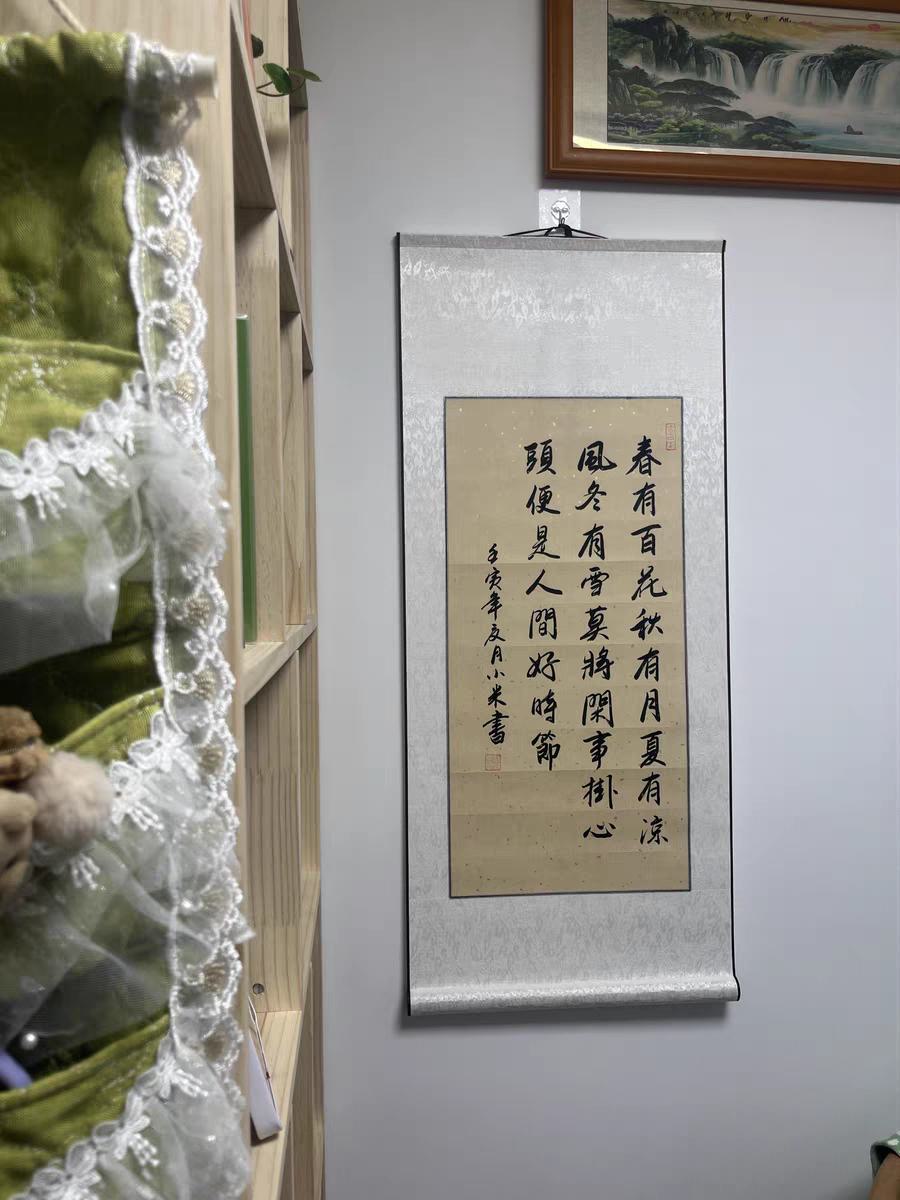 春有百花秋有月夏有涼
風冬有雪莫將閑事掛心
頭便是人間好時節
壬寅年夏月小米書